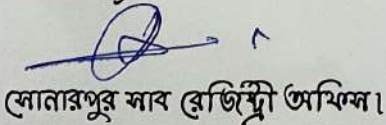 সোনারপুর সাব রেজিষ্ট্রী অফিস।